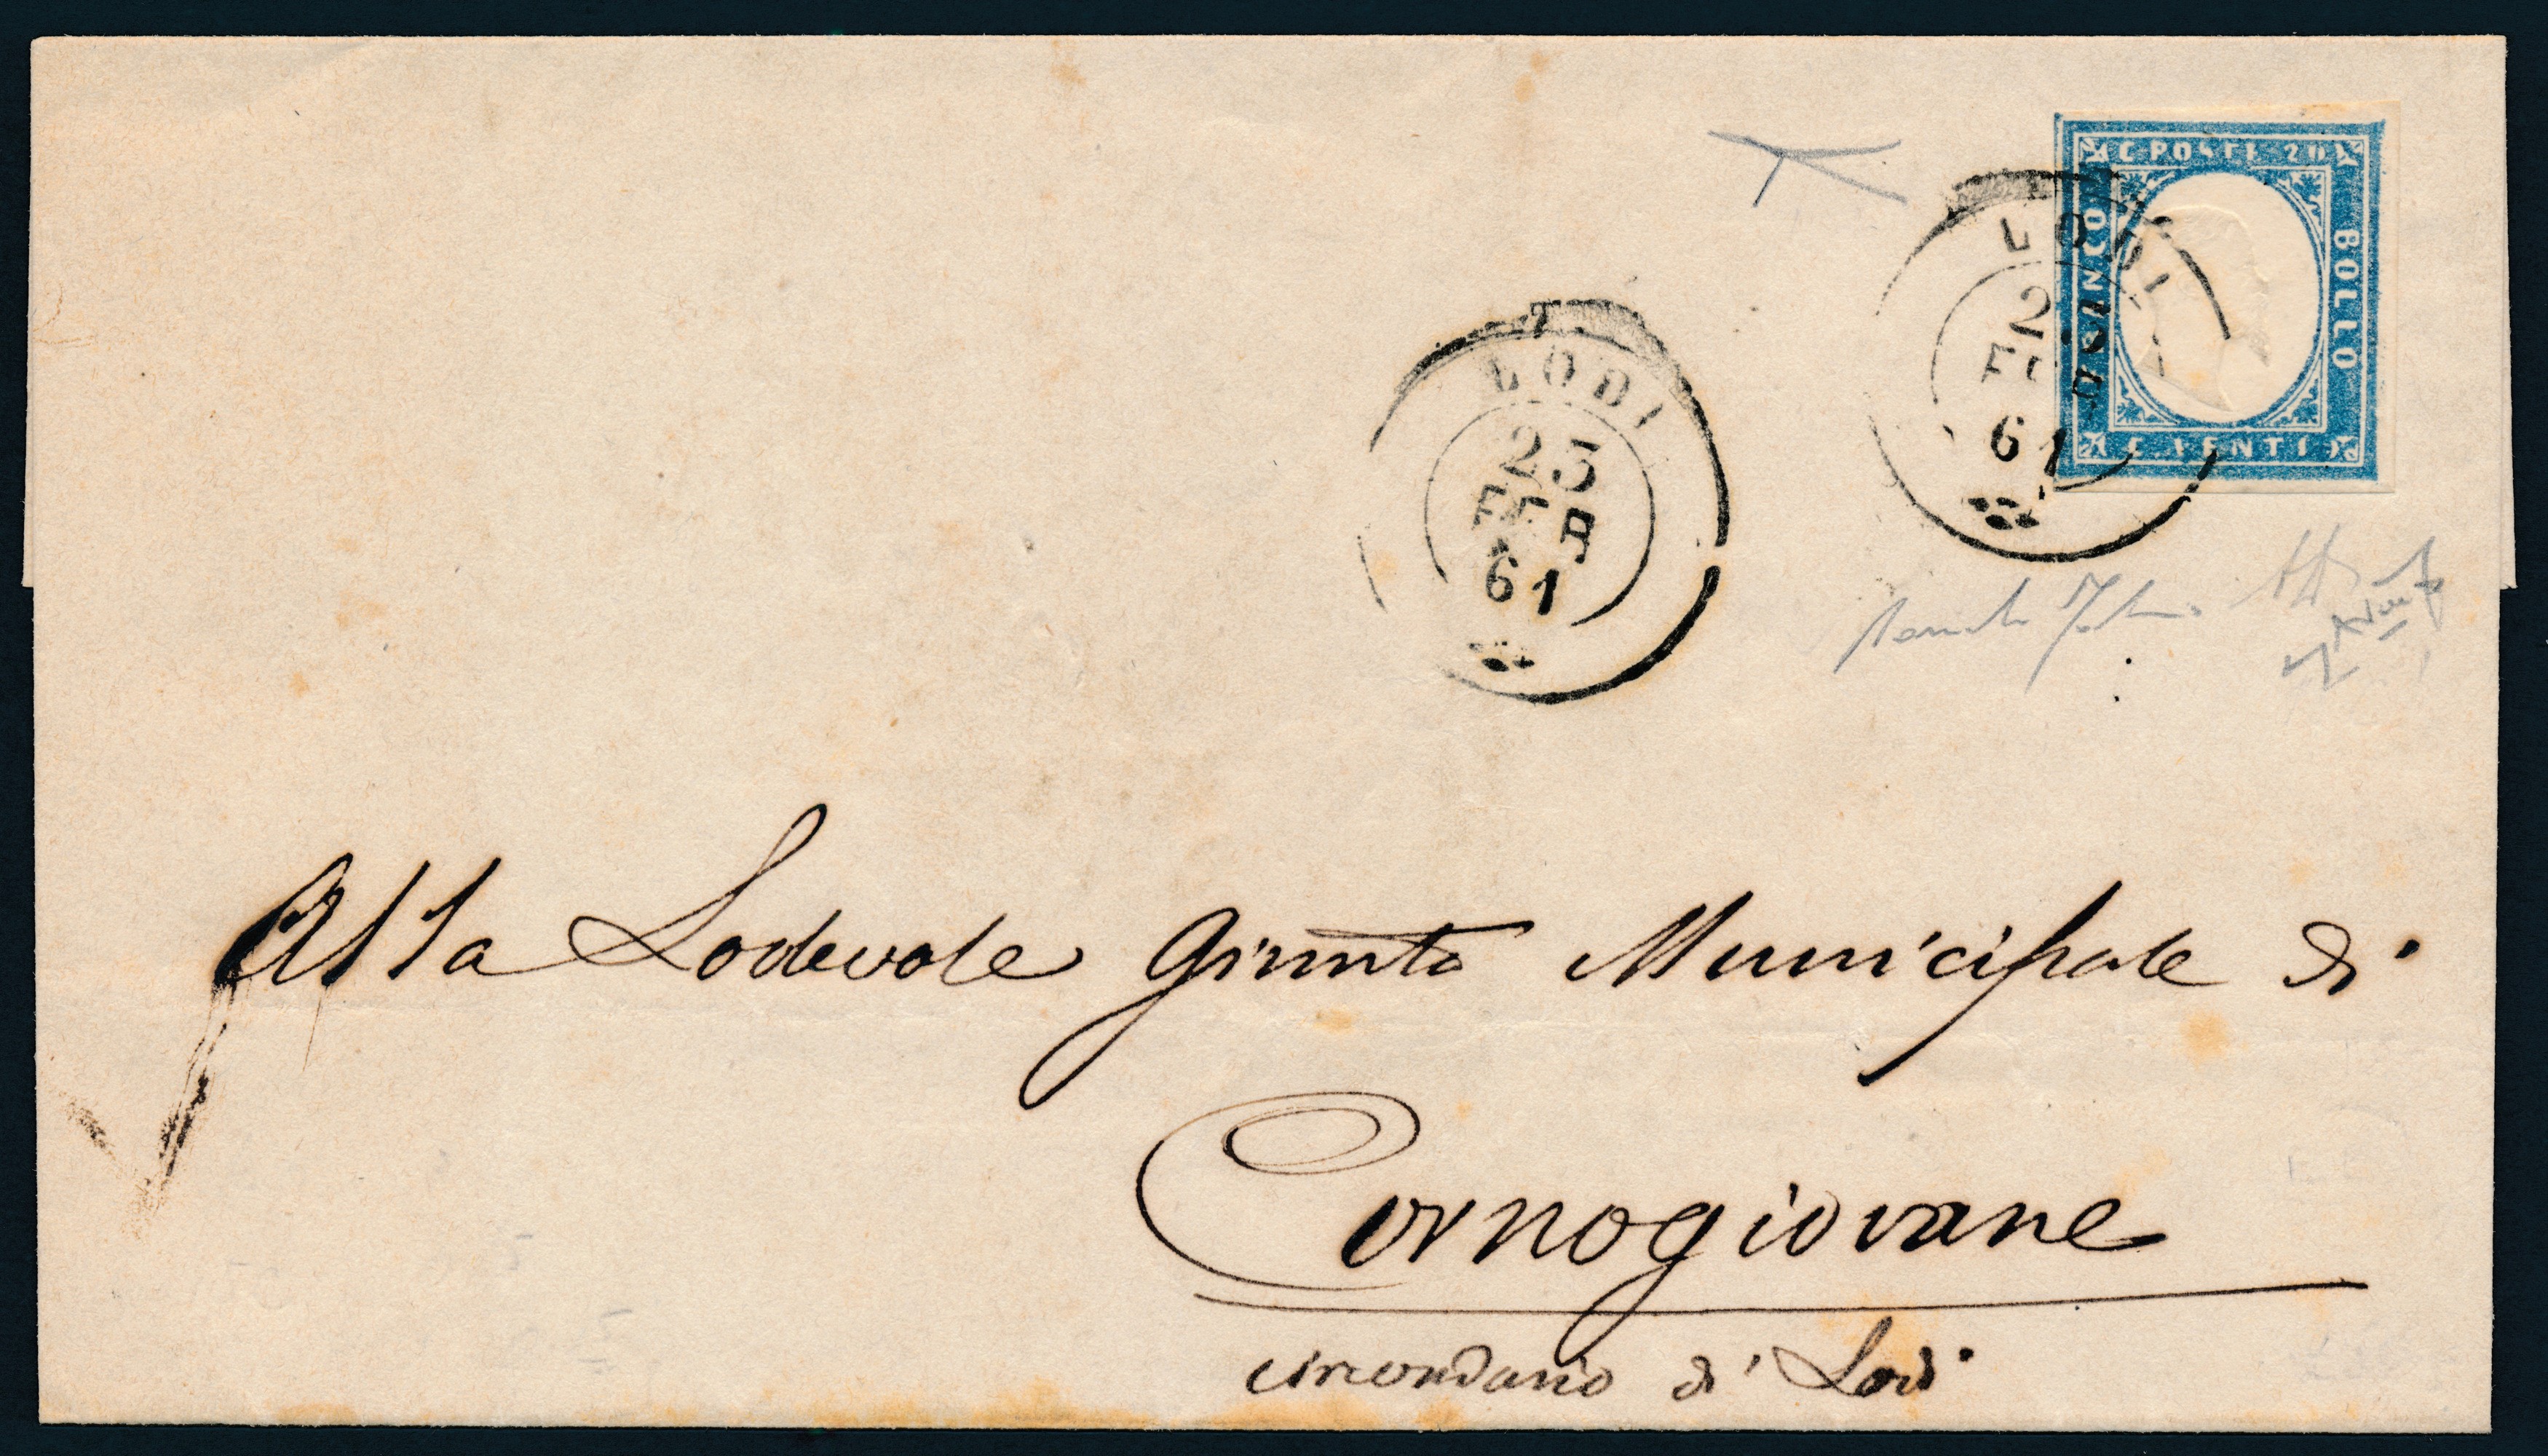 C. POSTE 20
FRANCO
BOLLO
C. VENTI
LODI
2
FEB
61
LODI
25
FEB
61
Alla Lodevole Giunta Municipale di
Cornogiovane
circondario di Lodi